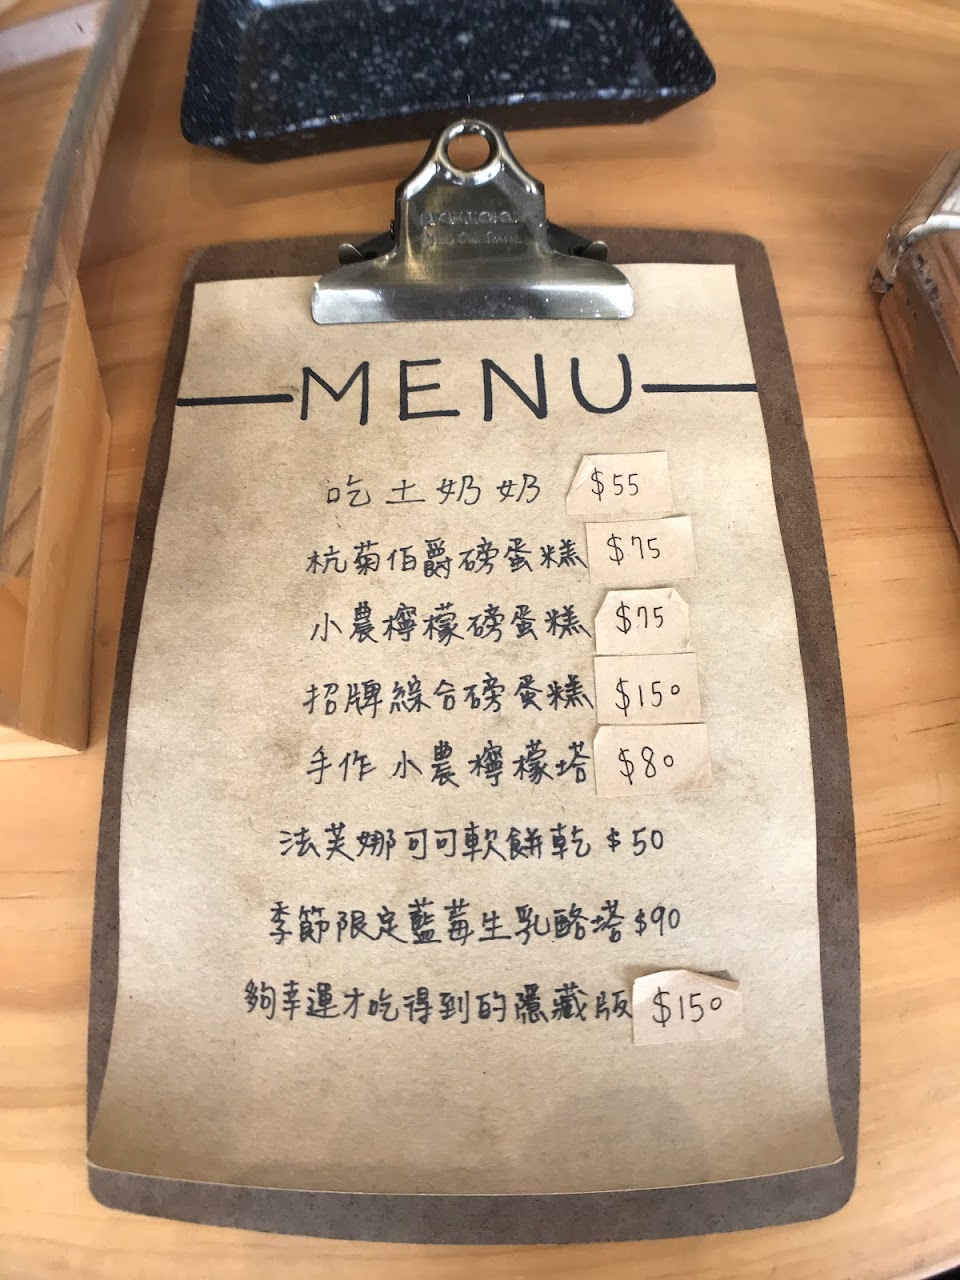 MENU
吃土奶奶 $55
杭菊伯爵磅蛋糕 $75
小農檸檬磅蛋糕 $75
招牌綜合磅蛋糕 $150
手作小農檸檬塔 $80
法芙娜可可軟餅乾 $50
季節限定藍莓生乳酪塔 $90
夠幸運才吃得到的隱藏版 $150